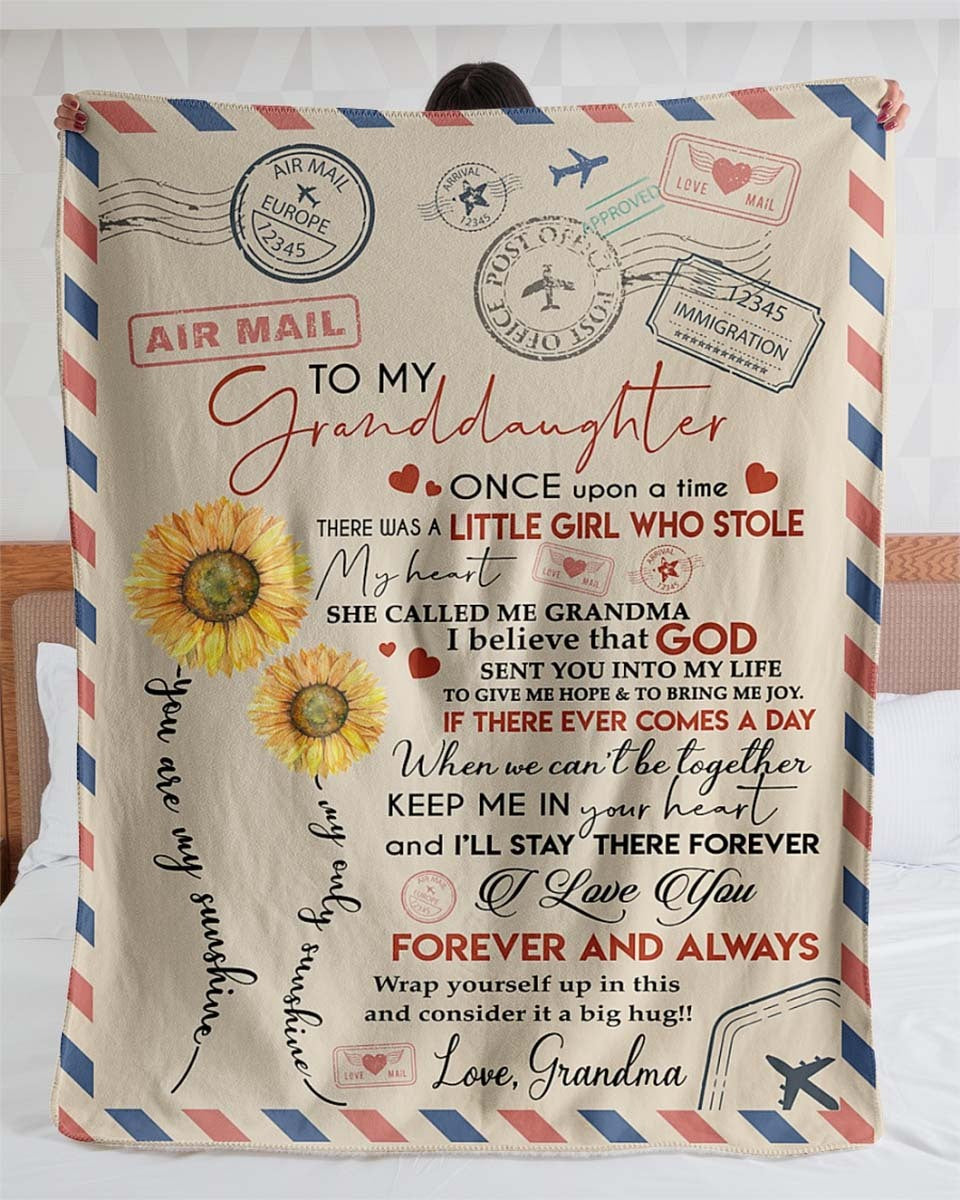 AIR MAIL
EUROPE
12345
ARRIVAL
12345
APPROVED
LOVE MAIL
POST OFFICE POST OFFICE
12345
IMMIGRATION
AIR MAIL
TO MY
Granddaughter
ONCE upon a time
THERE WAS A LITTLE GIRL WHO STOLE
My heart
LOVE MAIL
ARRIVAL
12345
SHE CALLED ME GRANDMA
I believe that GOD
SENT YOU INTO MY LIFE
TO GIVE ME HOPE & TO BRING ME JOY.
IF THERE EVER COMES A DAY
When we can't be together
KEEP ME IN your heart
and I'LL STAY THERE FOREVER
AIR MAIL
EUROPE
12345
I Love You
FOREVER AND ALWAYS
Wrap yourself up in this
and consider it a big hug!!
LOVE MAIL
Love, Grandma
you are my sunshine
my only sunshine